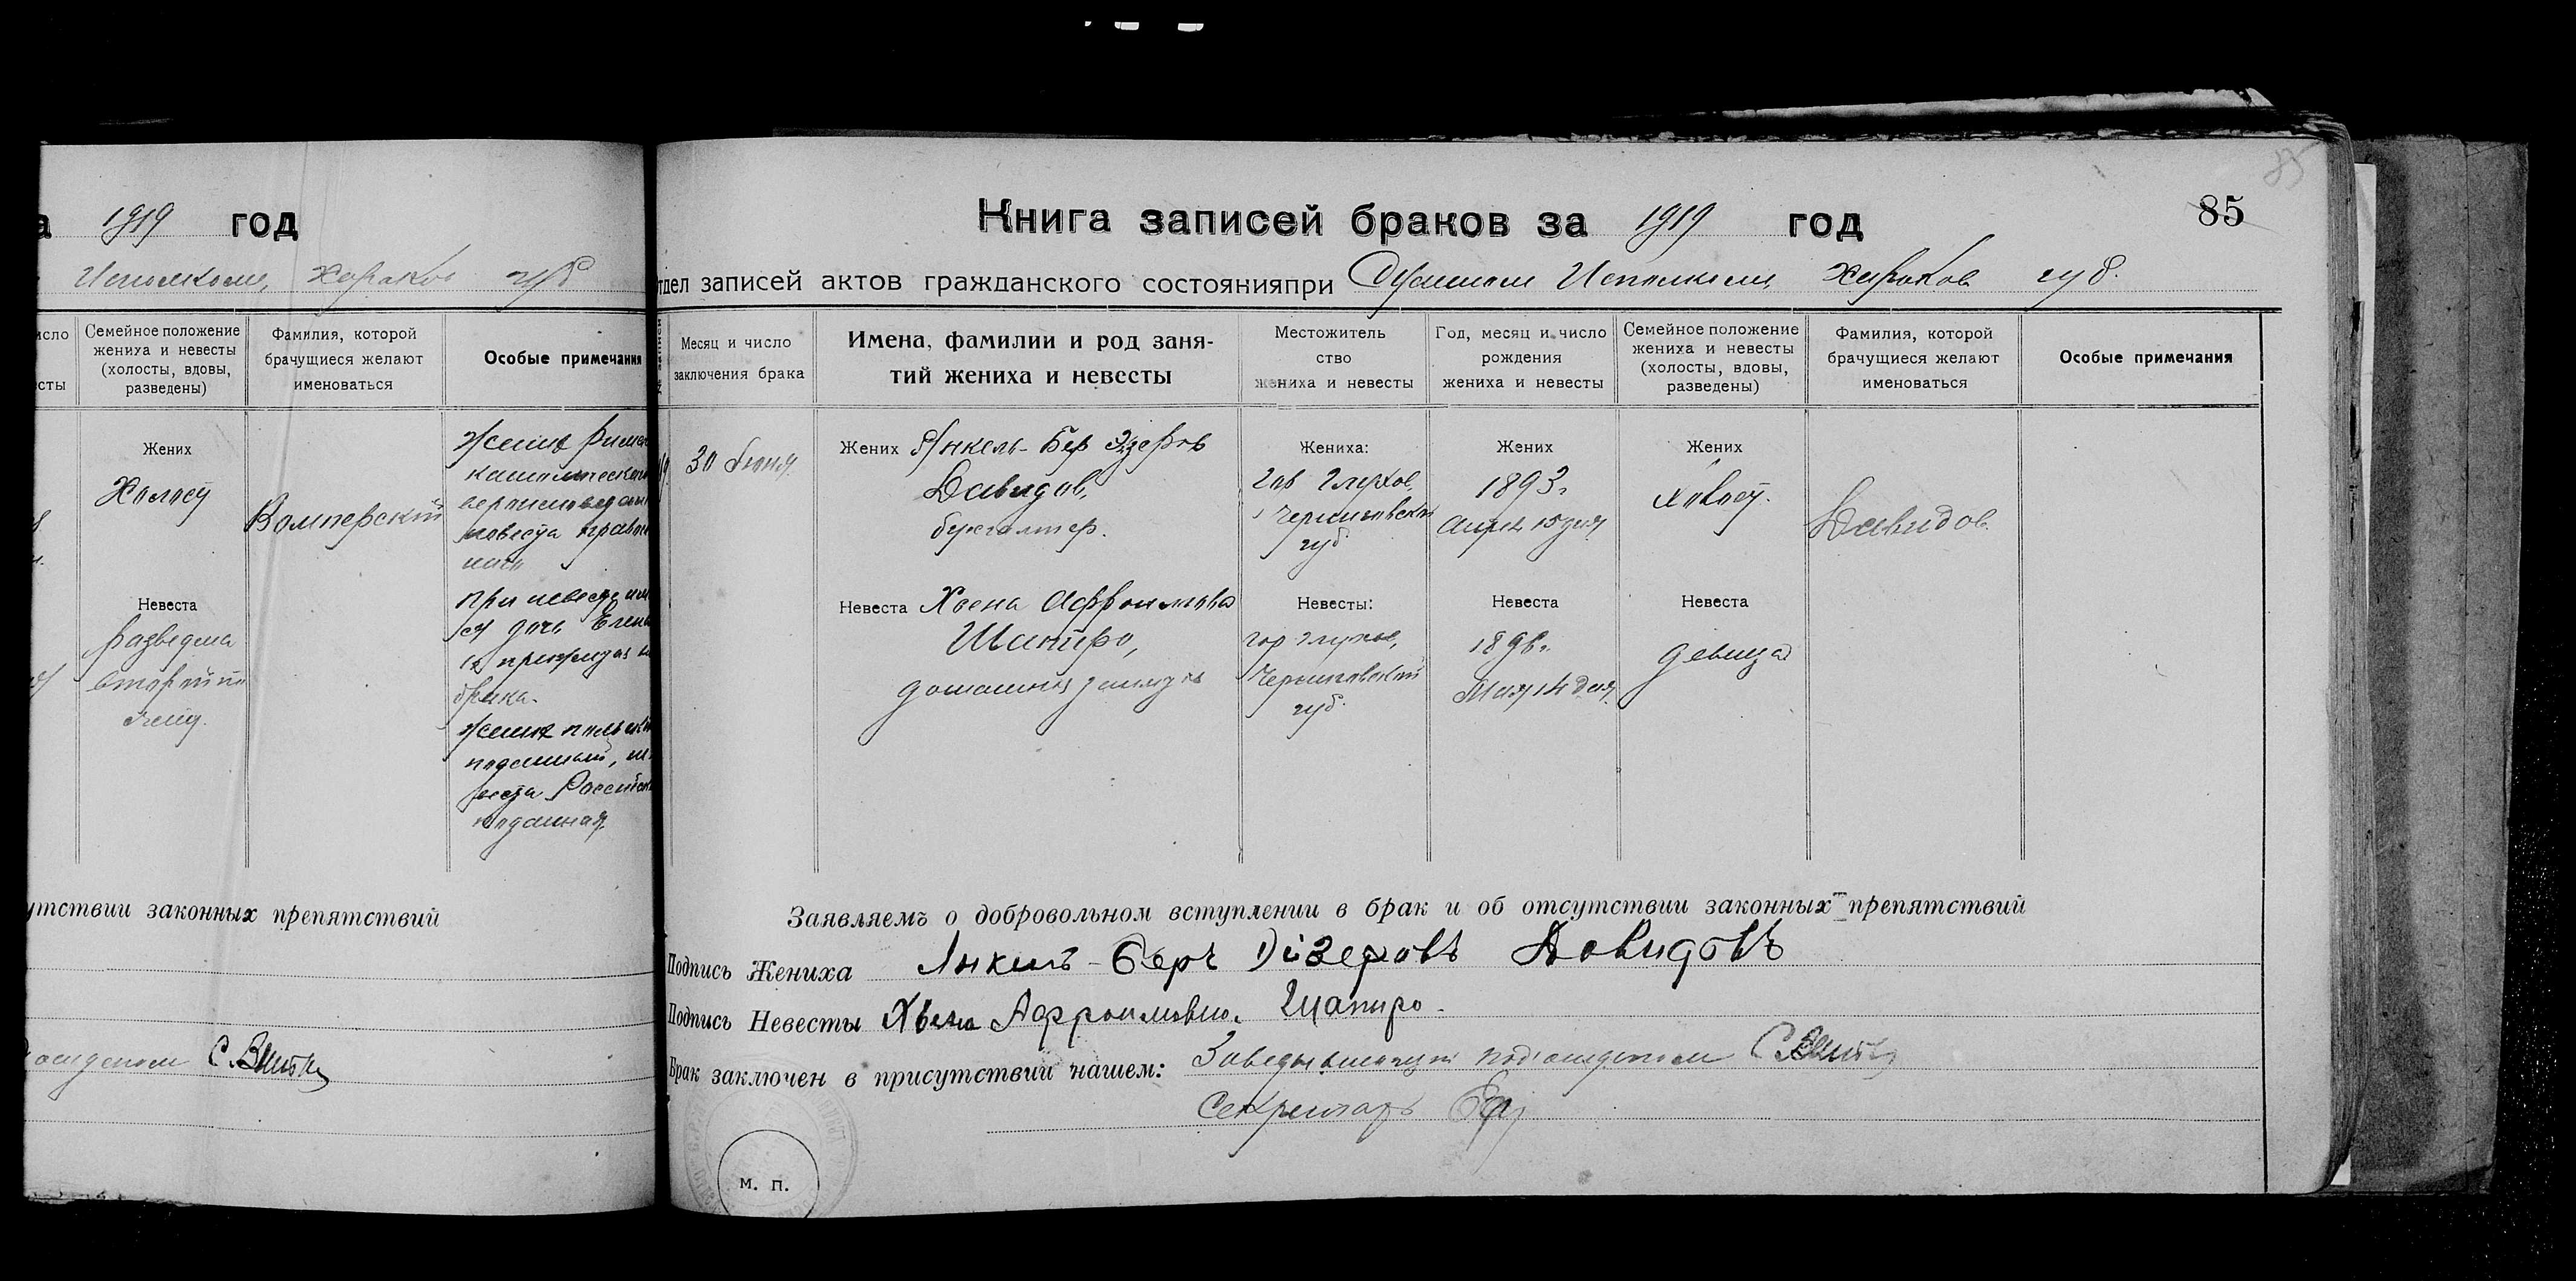 1919 год
Исполкоме, Харьков губ
Семейное положение
жениха и невесты
(холосты, вдовы,
разведены)
Фамилия, которой
брачущиеся желают
именоваться
Особые примечания
Жених
Холост
Невеста
Разведена
Вомперский
Жених Римск
католическаго
вероисповедан
невеста православ
При невесте
дочь Елена
брака.
Жених польский
подданный,
Российск
подданная
утствии законных препятствий
С. Вшит
Книга записей браков за 1919 год
85
тдел записей актов гражданского состоянияпри Исполкоме, Харьков губ.
Месяц и число
заключения брака
Имена, фамилии и род заня-
тий жениха и невесты
Местожитель
ство
жениха и невесты
Год, месяц и число
рождения
жениха и невесты
Семейное положение
жениха и невесты
(холосты, вдовы,
разведены)
Фамилия, которой
брачущиеся желают
именоваться
Особые примечания
30 Июня
Жених Янкель-Бер
Давидов,
бухгалтер.
Невеста Хьена Аффроимовна
Шапиро,
домашния занятия
Жениха:
Гор Глухов,
Черниговской
губ
Невесты:
гор Глухов,
Черниговской
губ.
Жених
1893г
Апреля 15 дня
Невеста
189
Мая 14 дня
Жених
Холост.
Невеста
девица
Давидов.
Заявляемъ о добровольном вступлении в брак и об отсутствии законных препятствий
Подпись Жениха Янкель-Беръ Давидовъ
Подпись Невесты Хьена Аффроимовна Шапиро.
Брак заключен в присутствии нашем: Заведывающий подотделом
Секретарь
м. п.